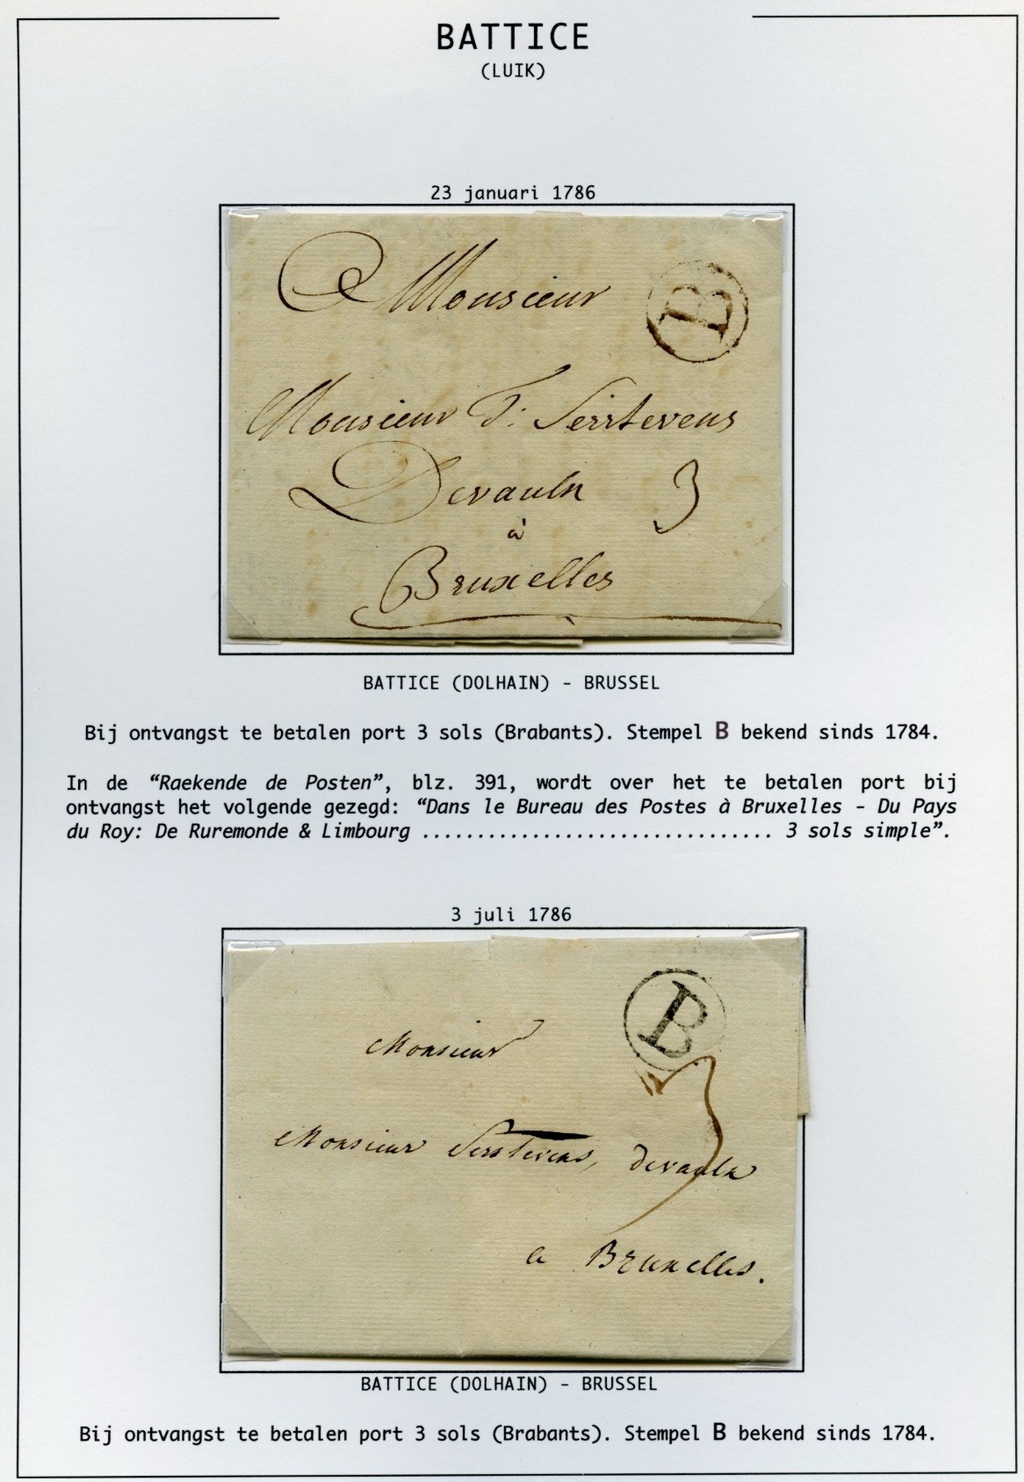 BATTICE
(LUIK)
23 januari 1786
Monsieur
B
Monsieur T: Serstevens
Devaulx 3
à
Bruxelles
BATTICE (DOLHAIN) - BRUSSEL
Bij ontvangst te betalen port 3 sols (Brabants). Stempel B bekend sinds 1784.
In de “Raekende de Posten”, blz. 391, wordt over het te betalen port bij
ontvangst het volgende gezegd: “Dans le Bureau des Postes à Bruxelles - Du Pays
du Roy: De Ruremonde & Limbourg ................................ 3 sols simple”.
3 juli 1786
B
Monsieur
3
Monsieur Serstevens, devaulx
a Bruxelles.
BATTICE (DOLHAIN) - BRUSSEL
Bij ontvangst te betalen port 3 sols (Brabants). Stempel B bekend sinds 1784.